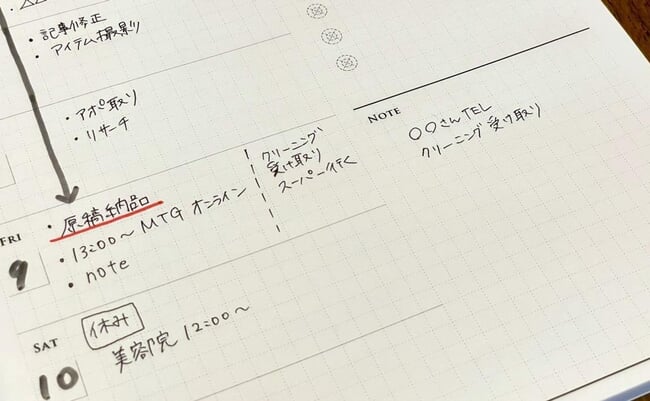 ・記事修正
・アイテム撮影
・アポ取り
・リサーチ
FRI
9
・原稿納品
・13:00〜 MTG オンライン
・note
クリーニング
受け取り
スーパー行く
SAT
10
休み
美容院 12:00〜
NOTE
〇〇さんTEL
クリーニング 受け取り